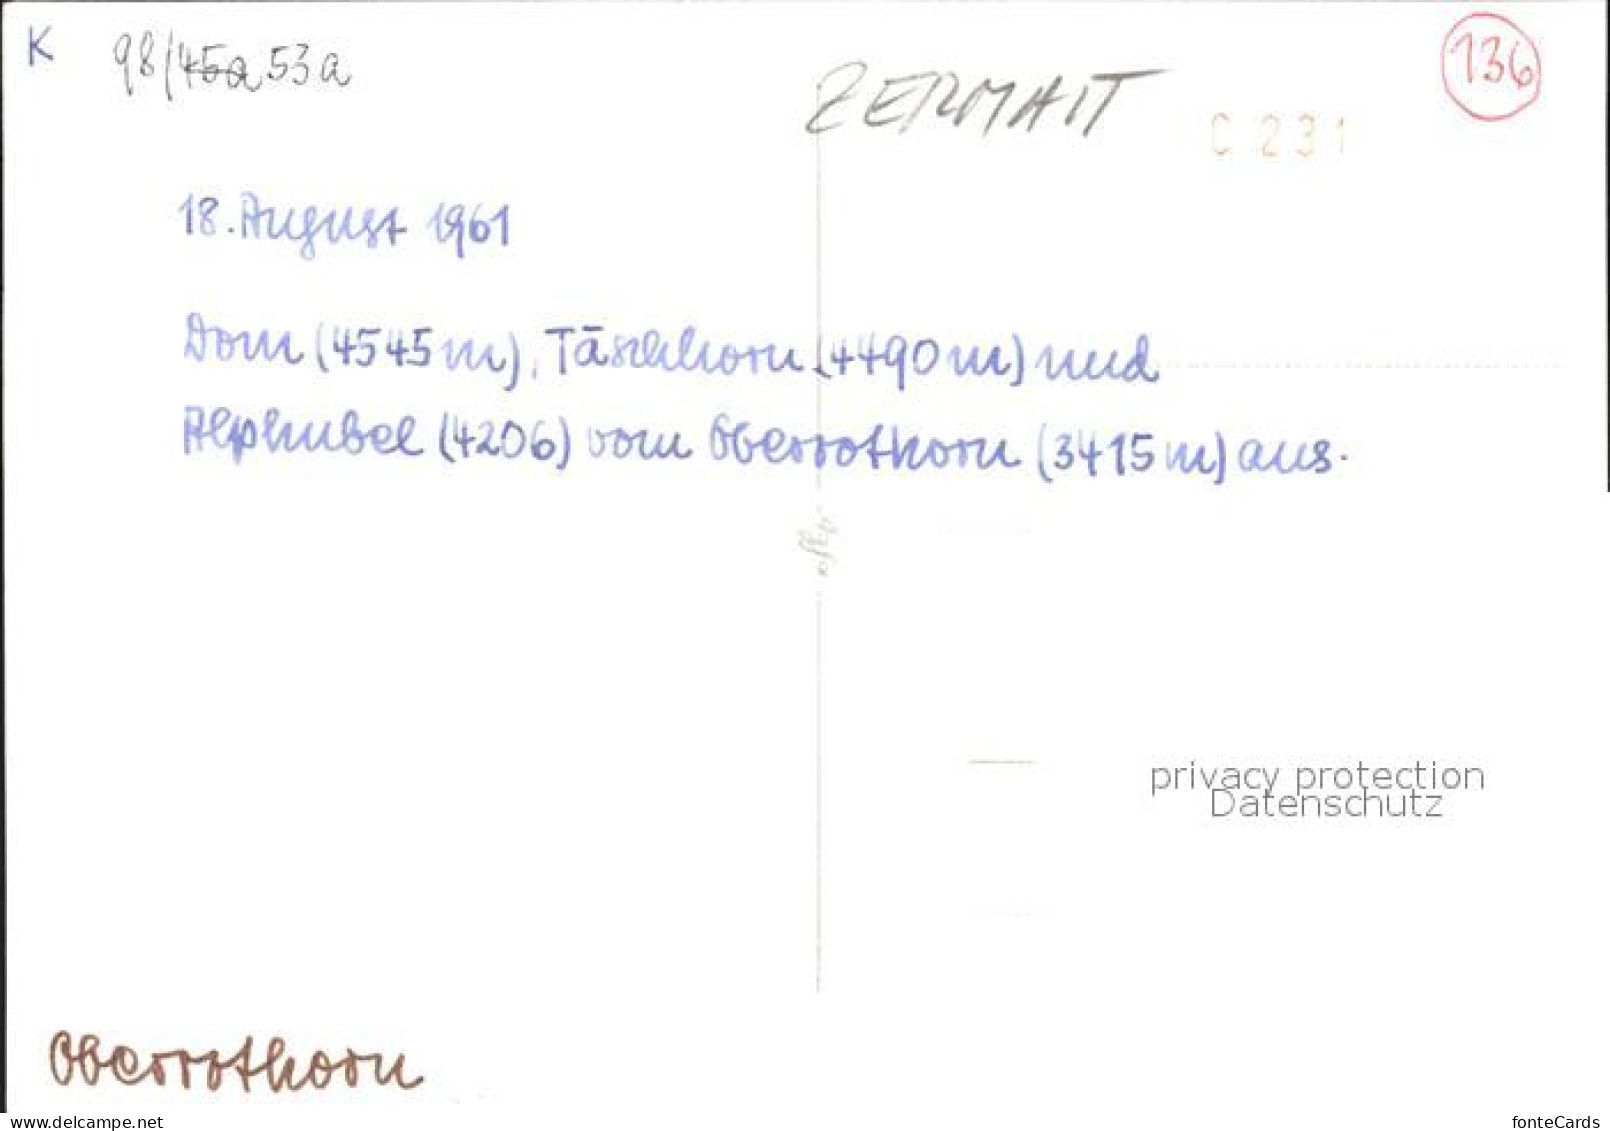 K 98/45a 53a
ZERMATT
136
C 231
18. August 1961
Dom (4545 m), Täschhorn (4490 m) und
Alphubel (4206) vom Oberrothorn (3415 m) aus.
privacy protection
Datenschutz
Oberrothorn
www.delcampe.net
fonteCards